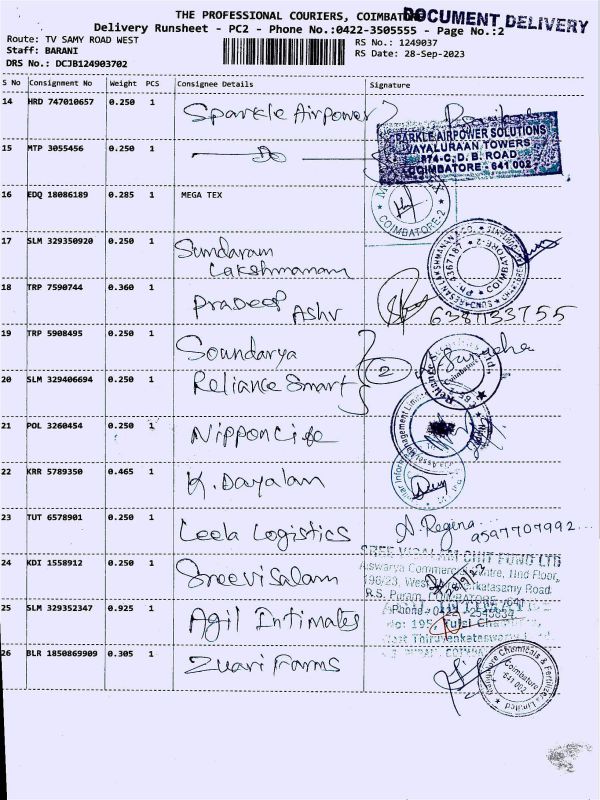 THE PROFESSIONAL COURIERS, COIMBATORE
DOCUMENT DELIVERY
Delivery Runsheet - PC2 - Phone No.:0422-3505555 - Page No.:2
Route: TV SAMY ROAD WEST
Staff: BARANI
DRS No.: DCJB124903702
RS No.: 1249037
RS Date: 28-Sep-2023
S No Consignment No Weight PCS Consignee Details Signature
14 HRD 747010657 0.250 1 Sparkle Airpower
SPARKLE AIRPOWER SOLUTIONS
JAYALURAAN TOWERS
574-C, D. B. ROAD,
COIMBATORE - 641 002
15 MTP 3055456 0.250 1 Do
16 EDQ 18086189 0.285 1 MEGA TEX
COIMBATORE-2
17 SLM 329350920 0.250 1 Sundaram
Lakshmanam
COIMBATORE-2
18 TRP 7590744 0.360 1 Pradeep
Ashv
6381133755
19 TRP 5908495 0.250 1 Soundarya
20 SLM 329406694 0.250 1 Reliance Smart
2
Coimbatore
21 POL 3260454 0.250 1 Nippon Life
22 KRR 5789350 0.465 1 K. Dayalan
23 TUT 6578901 0.250 1 Leela Logistics
A. Regina
9597707992
24 KDI 1558912 0.250 1 Sreevisalam
SREE VISALAM CHIT FUND LTD
Aiswarya Commercial Centre, IInd Floor,
196/23, West Venkatasamy Road
R.S. Puram, COIMBATORE - 641
Phone: 0422
25 SLM 329352347 0.925 1 Agil Intimates
No: 195,
26 BLR 1850869909 0.305 1 Zuari Farms
Mangalore Chemicals & Fertilizers Limited
Coimbatore
641 002